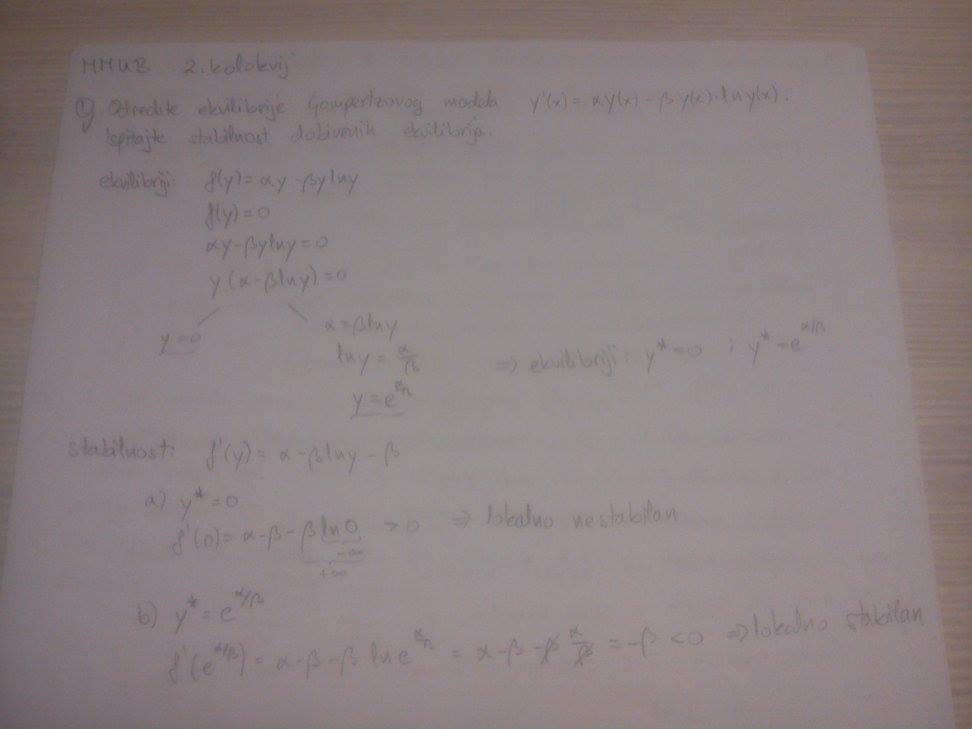 MMUB 2. kolokvij
① Odredite ekvilibrije Gompertzovog modela y'(x) = αy(x) - βy(x)·ln y(x).
Ispitajte stabilnost dobivenih ekvilibrija.
ekvilibriji: f(y) = αy - βy ln y
f(y) = 0
αy - βy ln y = 0
y(α - β ln y) = 0
y = 0
α = β ln y
ln y = α/β
y = e^(α/β)
⇒ ekvilibriji: y* = 0 i y* = e^(α/β)
stabilnost: f'(y) = α - β ln y - β
a) y* = 0
f'(0) = α - β - β ln 0 > 0 ⇒ lokalno nestabilan
-∞
+∞
b) y* = e^(α/β)
f'(e^(α/β)) = α - β - β ln e^(α/β) = α - β - β α/β = -β < 0 ⇒ lokalno stabilan